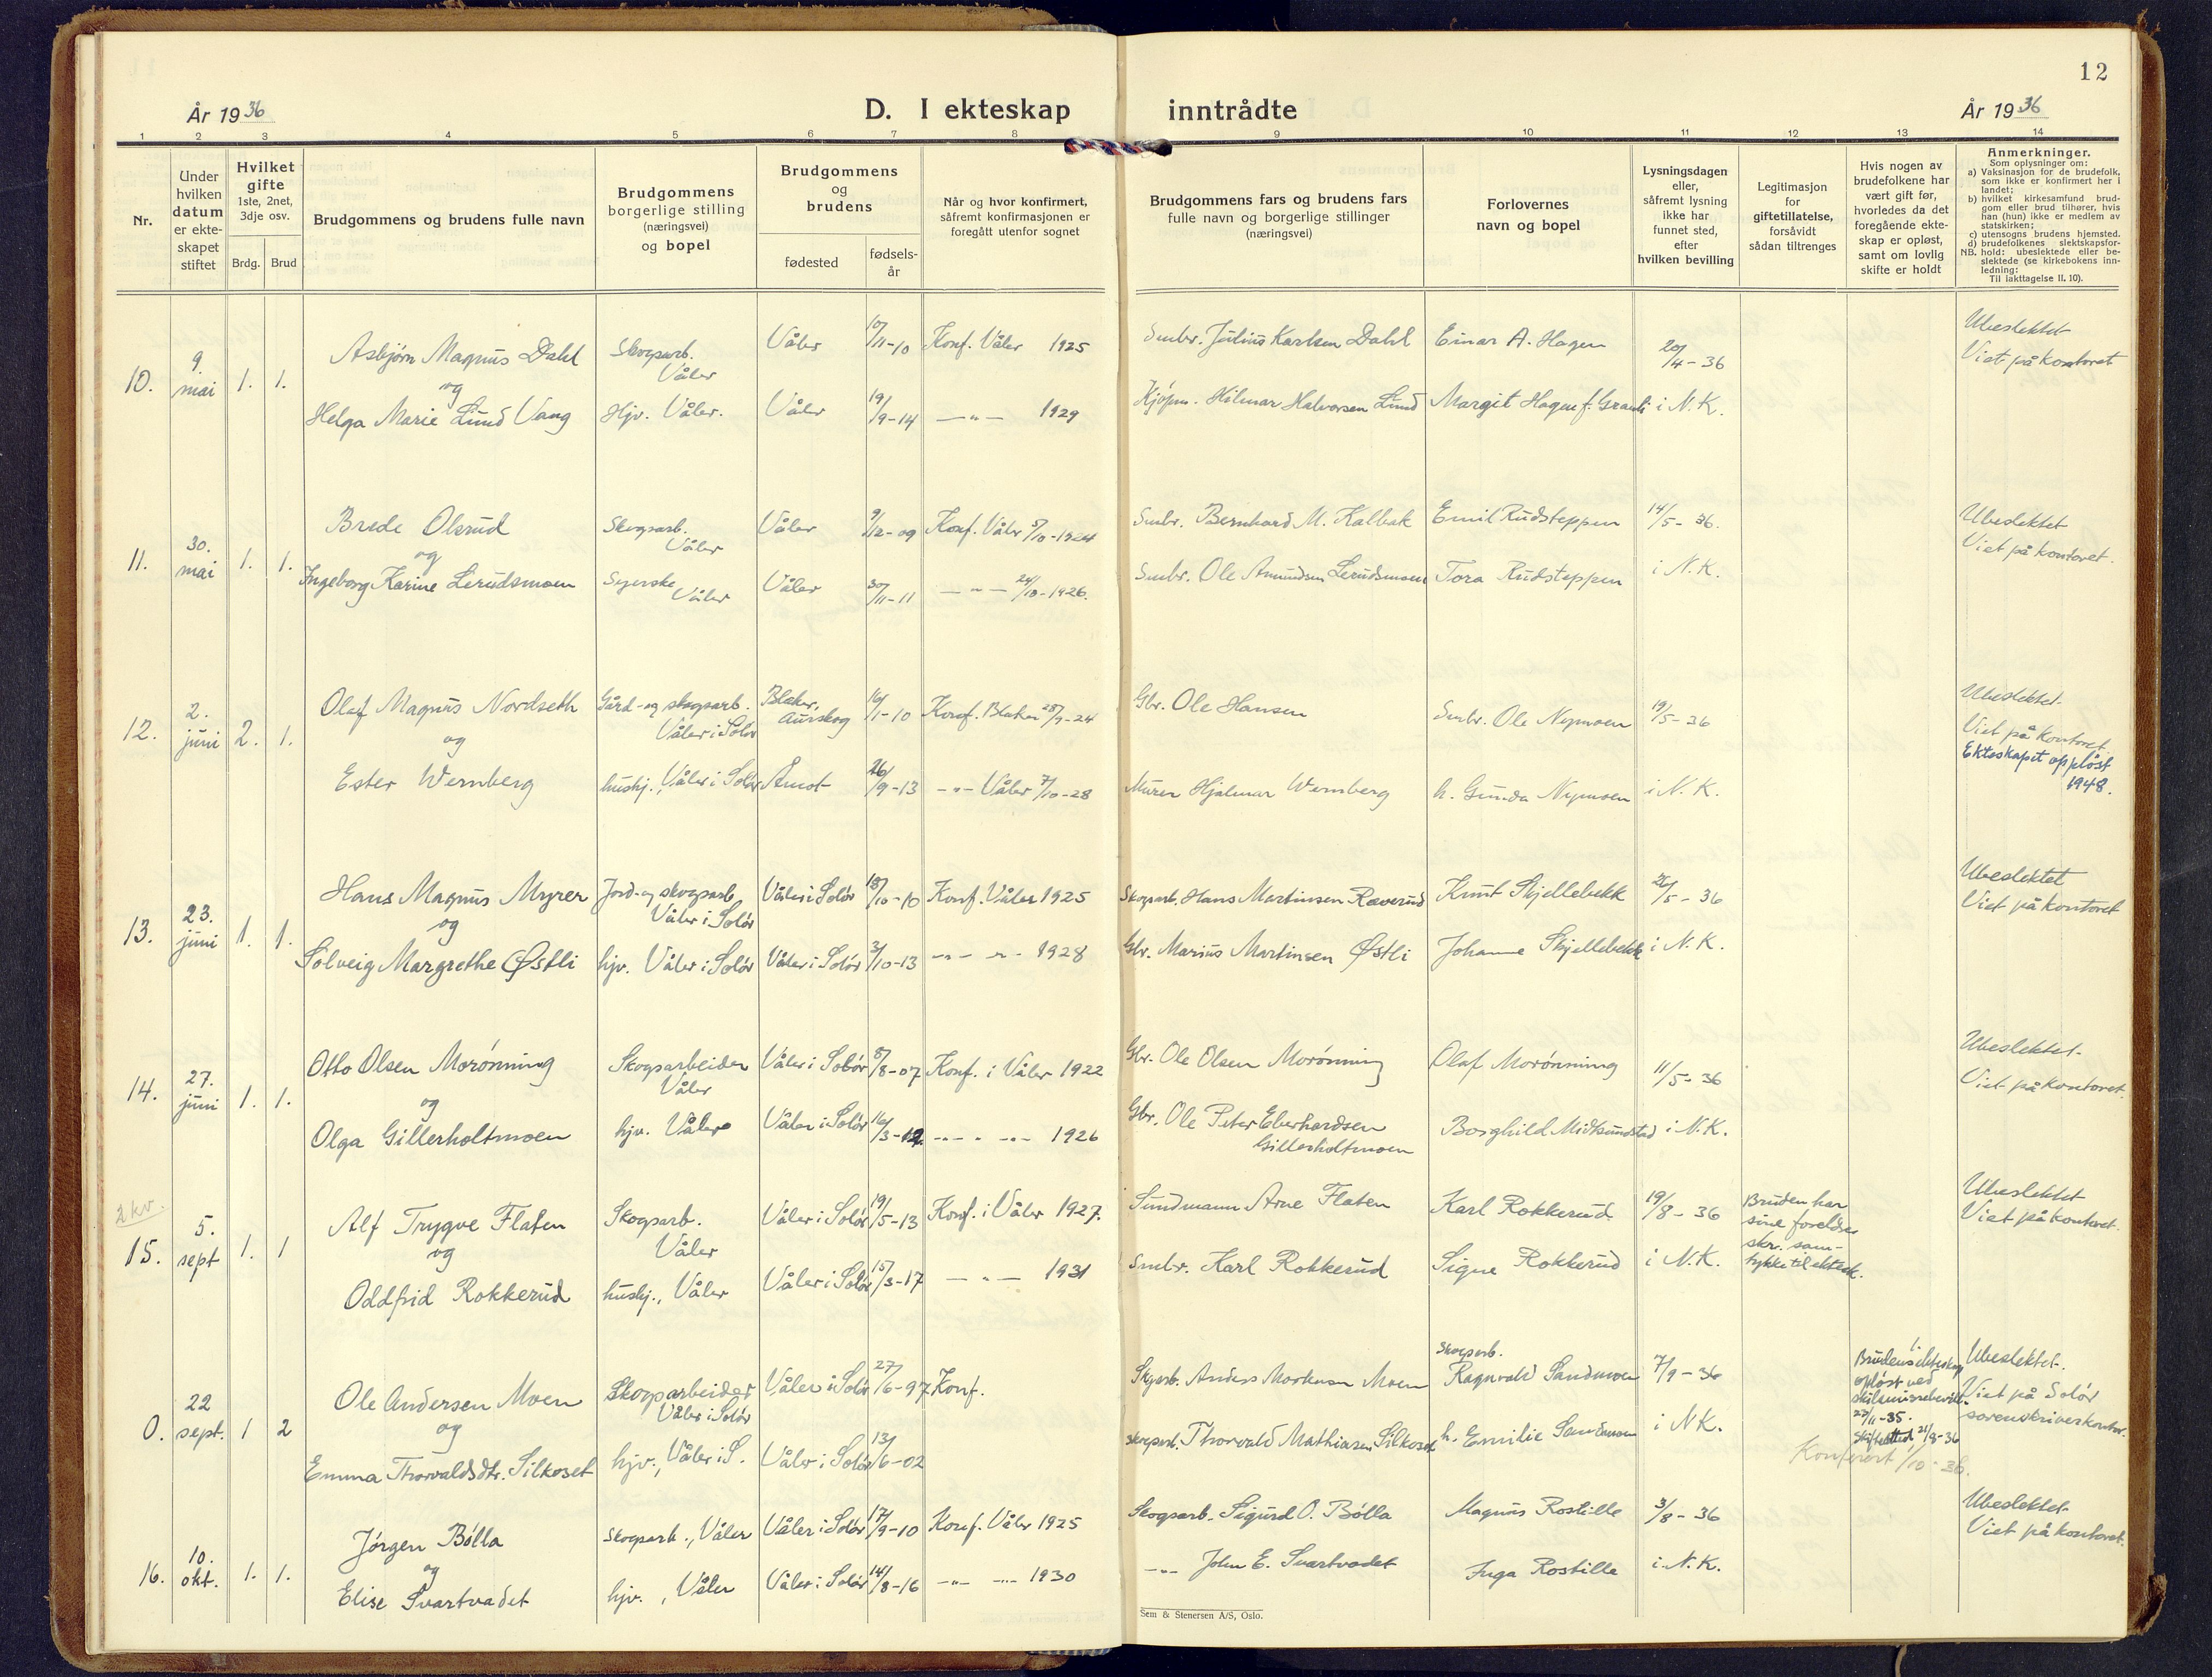 12
År 1936
D. I ekteskap inntrådte
År 1936
1 2 3 4 5 6 7 8 9 10 11 12 13 14
Nr.
Under
hvilken
datum
er ekte-
skapet
stiftet
Hvilket
gifte
1ste, 2net,
3dje osv.
Brdg. Brud
Brudgommens og brudens fulle navn
Brudgommens
borgerlige stilling
(næringsvei)
og bopel
Brudgommens
og
brudens
fødested
fødsels-
år
Når og hvor konfirmert,
såfremt konfirmasjonen er
foregått utenfor sognet
Brudgommens fars og brudens fars
fulle navn og borgerlige stillinger
(næringsvei)
Forlovernes
navn og bopel
Lysningsdagen
eller,
såfremt lysning
ikke har
funnet sted,
efter
hvilken bevilling
Legitimasjon
for
giftetillatelse,
forsåvidt
sådan tiltrenges
Hvis nogen av
brudefolkene har
vært gift før,
hvorledes da det
foregående ekte-
skap er opløst,
samt om lovlig
skifte er holdt
Anmerkninger.
Som oplysninger om:
a) Vaksinasjon for de brudefolk,
som ikke er konfirmert her i
landet;
b) hvilket kirkesamfund brud-
gom eller brud tilhører, hvis
han (hun) ikke er medlem av
statskirken;
c) utensogns brudens hjemsted.
d) brudefolkenes slektskapsfor-
NB. hold: ubeslektede eller be-
slektede (se kirkebokens inn-
ledning:
Til iakttagelse II. 10).
10. 9. mai 1. 1.
Asbjørn Magnus Dahl Skogsarb. Våler Våler 10/11-10 Konf. Våler 1925 Smbr. Julius Karlsen Dahl Einar A. Hagen 20/4-36 Ubeslektet
og Viet på kontoret
Helga Marie Lund Vang Hjv. Våler. Våler 19/9-14 —"— 1929 Kjøpm. Hilmar Halvorsen Lund Margit Hagen f. i N.K.
11. 30. mai 1. 1.
Brede Olsrud Skogsarb. Våler Våler 9/12-09 Konf. Våler 5/10-1924 Smbr. Bernhard M. Kalbak Emil Rudsteppen 14/5-36. Ubeslektet
og Viet på kontoret.
Ingeborg Karine Lerudsmoen Syerske Våler Våler 30/11-11 —"— 24/10-1926. Smbr. Ole Amundsen Lerudsmoen Tora Rudsteppen i N.K.
12. 2. juni 2. 1.
Olaf Magnus Nordseth Gård- og skogsarb. Våler i Solør Blaker, Aurskog 16/1-10 Konf. Blaker 28/9-24 Gbr. Ole Hansen Smbr. Ole Nymoen 19/5-36 Ubeslektet.
og Viet på kontoret.
Ester Wernberg hushj., Våler i Solør Åmot 26/9-13 —"— Våler 7/10-28 Murer Hjalmar Wernberg h. Gunda Nymoen i N.K. Ekteskapet oppløst
1948.
13. 23. juni 1. 1.
Hans Magnus Myrer Jord- og skogsarb. Våler i Solør Våler i Solør 18/10-10 Konf. Våler 1925 Skogsarb. Hans Martinsen Ræverud Knut Skjellebekk 26/5-36 Ubeslektet
og Viet på kontoret
Solveig Margrethe Østli hjv. Våler i Solør Våler i Solør 3/10-13 —"— —"— 1928 Gbr. Marius Martinsen Østli Johanne Skjellebekk i N.K.
14. 27. juni 1. 1.
Otto Olsen Morønning Skogsarbeider Våler Våler i Solør 8/8-07 Konf. i Våler 1922 Gbr. Ole Olsen Morønning Olaf Morønning 11/5-36 Ubeslektet.
og Viet på kontoret.
Olga Gillerholtmoen hjv. Våler Våler i Solør 16/3-12 —"— " —"— 1926 Gbr. Ole Peter Eberhardsen Gillerholtmoen Borghild Midtsundstad i N.K.
2 kv.
15. 5. sept 1. 1
Alf Trygve Flaten Skogsarb. Våler Våler i Solør 19/5-13 Konf. i Våler 1927. Sundmann Arne Flaten Karl Rokkerud 19/8-36 Bruden har Ubeslektet
og sine foreldres Viet på kontoret.
skr. sam-
Oddfrid Rokkerud hushj., Våler Våler i Solør 15/3-17 —"— 1931 Smbr. Karl Rokkerud Signe Rokkerud i N.K. tykke til ektesk.
0. 22 sept. 1 2
Ole Andersen Moen Skogsarbeider Våler i Solør Våler i Solør 27/6-97 Konf. Skogsarb. Anders Moen Skogsarb. Ragnvald Sandmoen 7/9-36 Brudens 1. ekteskap Ubeslektet.
og opløst ved Viet på Solør
skilsmissebevill. sorenskriverkontor.
23/11-35.
Emma Thorvaldsdtr. Silkoset hjv., Våler i S. Våler i Solør 13/6-02 Skogsarb. Thorvald Mathiasen Silkoset h. Emilie Sandmoen i N.K. 21/8-36
Konferert 1/10-36.
16. 10. okt. 1. 1.
Jørgen Bølla Skogsarb., Våler Våler i Solør 17/9-10 Konf. Våler 1925 Skogsarb. Sigurd O. Bølla Magnus Rostille 3/8-36 Ubeslektet
og Viet på kontoret.
Elise Svartvadet hjv., Våler Våler i Solør 14/8-16 —"— —"— 1930 —"— John E. Svartvadet Inga Rostille i N.K.
Sem & Stenersen A/S, Oslo.